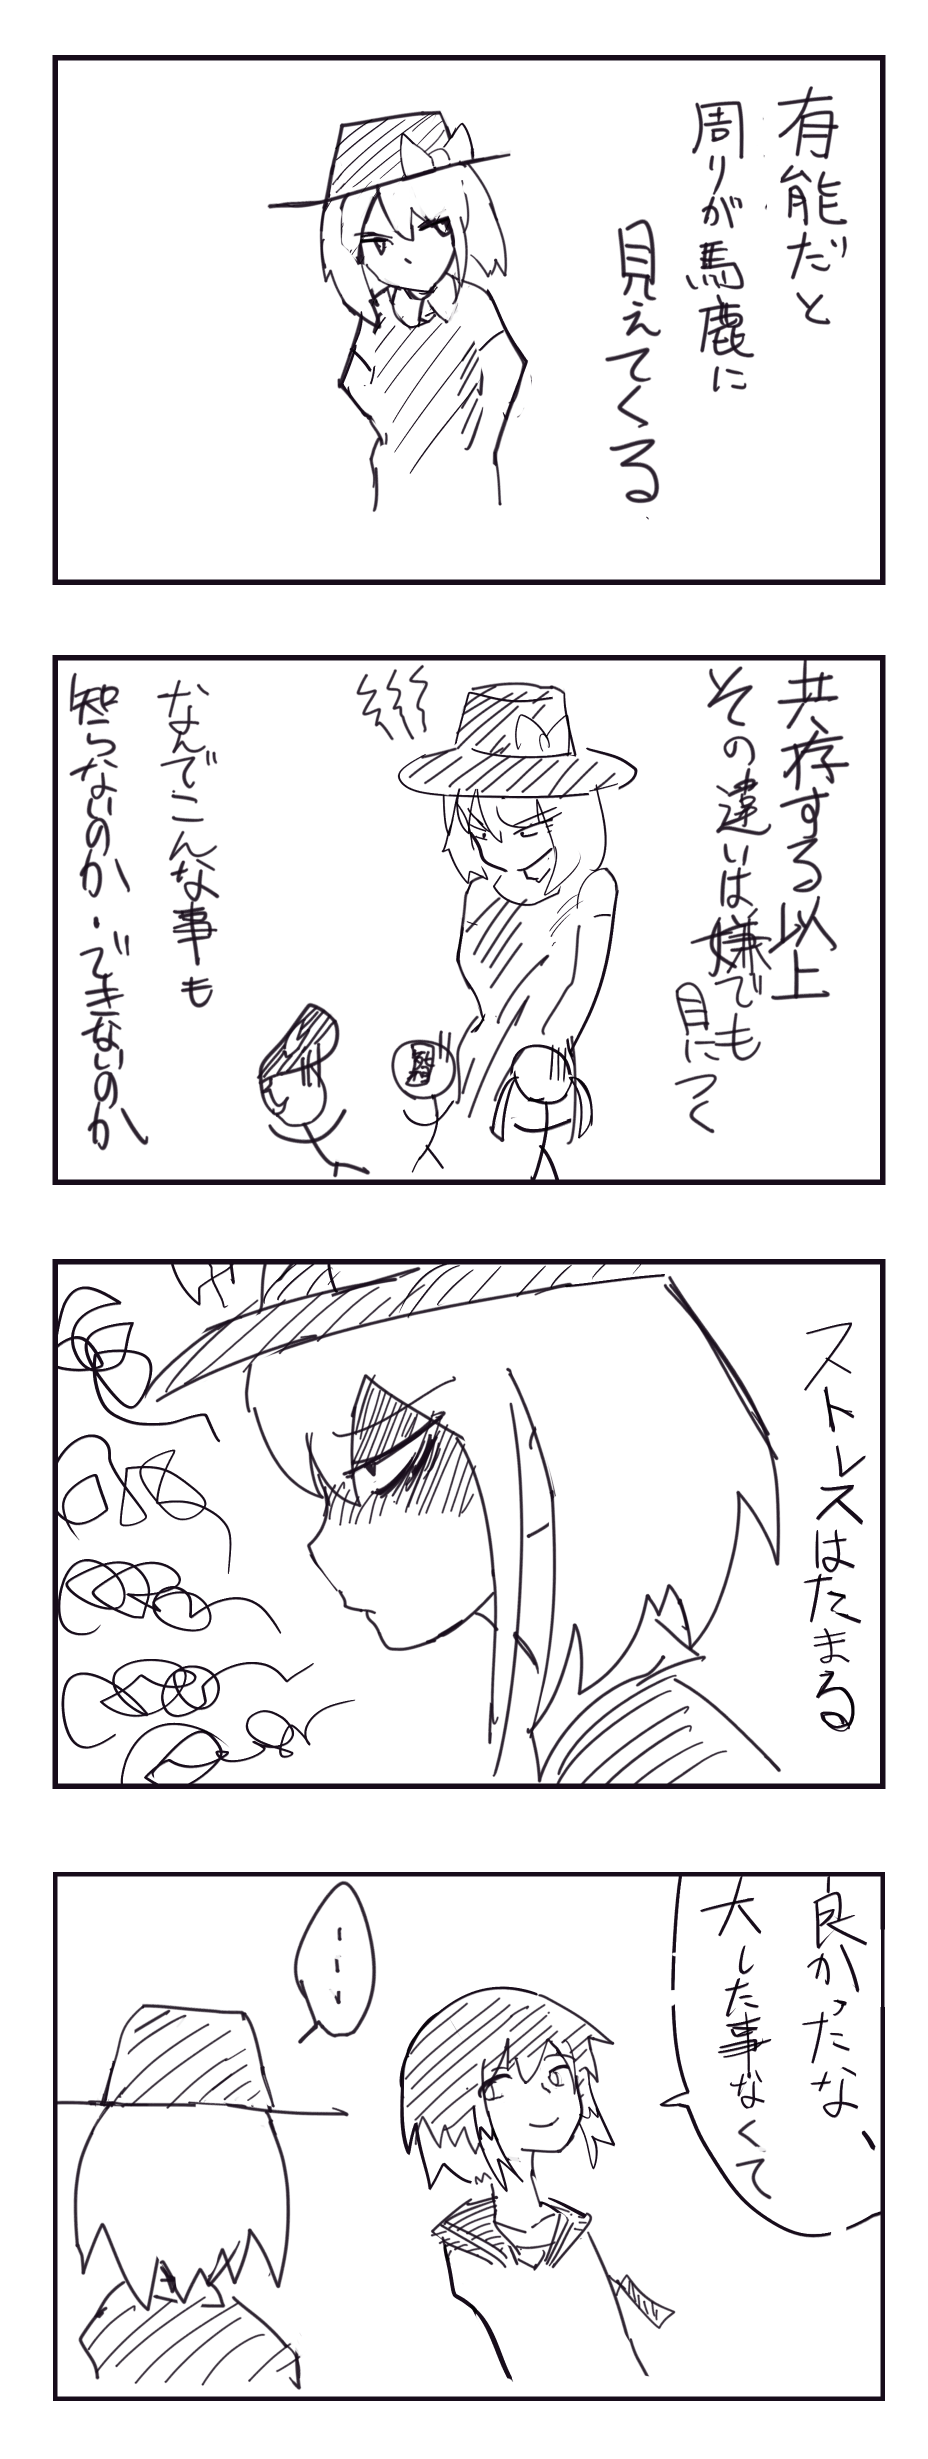 有能だと
周りが馬鹿に
見えてくる
共存する以上
その違いは嫌でも
目につく
なんでこんな事も
知らないのか・できないのか
ストレスはたまる
良かったな、
大した事なくて
---